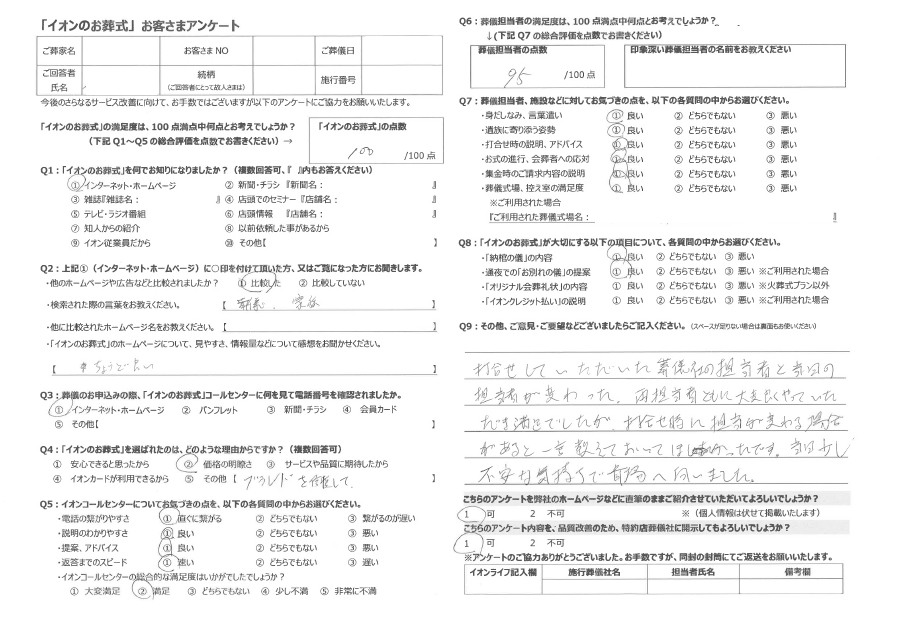 「イオンのお葬式」お客さまアンケート
ご葬家名 お客さまNO ご葬儀日
ご回答者氏名 続柄（ご回答者にとって故人さまは） 施行番号
今後のさらなるサービス改善に向けて、お手数ではございますが以下のアンケートにご協力をお願いいたします。
「イオンのお葬式」の満足度は、100点満点中何点とお考えでしょうか？
（下記Q1～Q5の総合評価を点数でお書きください）→
「イオンのお葬式」の点数
100 /100点
Q1：「イオンのお葬式」を何でお知りになりましたか？（複数回答可、『 』内もお答えください）
① インターネット・ホームページ ② 新聞・チラシ『新聞名： 』
③ 雑誌『雑誌名： 』 ④ 店頭でのセミナー『店舗名： 』
⑤ テレビ・ラジオ番組 ⑥ 店頭情報 『店舗名： 』
⑦ 知人からの紹介 ⑧ 以前依頼した事があるから
⑨ イオン従業員だから ⑩ その他【 】
Q2：上記①（インターネット・ホームページ）に○印を付けて頂いた方、又はご覧になった方にお聞きします。
・他のホームページや広告などと比較されましたか？ ① 比較した ② 比較していない
・検索された際の言葉をお教えください。 【 】
・他に比較されたホームページ名をお教えください。【 】
・「イオンのお葬式」のホームページについて、見やすさ、情報量などについて感想をお聞かせください。
【 ちょうど良い 】
Q3：葬儀のお申込みの際、「イオンのお葬式」コールセンターに何を見て電話番号を確認されましたか。
① インターネット・ホームページ ② パンフレット ③ 新聞・チラシ ④ 会員カード
⑤ その他【 】
Q4：「イオンのお葬式」を選ばれたのは、どのような理由からですか？（複数回答可）
① 安心できると思ったから ② 価格の明瞭さ ③ サービスや品質に期待したから
④ イオンカードが利用できるから ⑤ その他【 ブランドを信頼して. 】
Q5：イオンコールセンターについてお気づきの点を、以下の各質問の中からお選びください。
・電話の繋がりやすさ ① 直ぐに繋がる ② どちらでもない ③ 繋がるのが遅い
・説明のわかりやすさ ① 良い ② どちらでもない ③ 悪い
・提案、アドバイス ① 良い ② どちらでもない ③ 悪い
・返答までのスピード ① 速い ② どちらでもない ③ 遅い
・イオンコールセンターの総合的な満足度はいかがでしたでしょうか？
① 大変満足 ② 満足 ③ どちらでもない ④ 少し不満 ⑤ 非常に不満
Q6：葬儀担当者の満足度は、100点満点中何点とお考えでしょうか？
↓（下記Q7の総合評価を点数でお書きください）
葬儀担当者の点数 印象深い葬儀担当者の名前をお教えください
95 /100点
Q7：葬儀担当者、施設などに対してお気づきの点を、以下の各質問の中からお選びください。
・身だしなみ、言葉遣い ① 良い ② どちらでもない ③ 悪い
・遺族に寄り添う姿勢 ① 良い ② どちらでもない ③ 悪い
・打合せ時の説明、アドバイス ① 良い ② どちらでもない ③ 悪い
・お式の進行、会葬者への応対 ① 良い ② どちらでもない ③ 悪い
・集金時のご請求内容の説明 ① 良い ② どちらでもない ③ 悪い
・葬儀式場、控え室の満足度 ① 良い ② どちらでもない ③ 悪い
※ご利用された場合
『ご利用された葬儀式場名： 』
Q8：「イオンのお葬式」が大切にする以下の項目について、各質問の中からお選びください。
・「納棺の儀」の内容 ① 良い ② どちらでもない ③ 悪い
・通夜での「お別れの儀」の提案 ① 良い ② どちらでもない ③ 悪い ※ご利用された場合
・「オリジナル会葬礼状」の内容 ① 良い ② どちらでもない ③ 悪い ※火葬式プラン以外
・「イオンクレジット払い」の説明 ① 良い ② どちらでもない ③ 悪い ※ご利用された場合
Q9：その他、ご意見・ご要望などございましたらご記入ください。（スペースが足りない場合は裏面もお使いください）
打合せしていただいた葬儀社の担当者と当日の
担当者が変わった。両担当者ともに大変良くやっていた
だき満足でしたが、打合せ時に担当が変わる場合
があると一言教えておいてほしかったです。当日少し
不安な気持ちで斎場へ向いました。
こちらのアンケートを弊社のホームページなどに直筆のままご紹介させていただいてよろしいでしょうか？
1 可 2 不可 （個人情報は伏せて掲載いたします）
こちらのアンケート内容を、品質改善のため、特約店葬儀社に開示してもよろしいでしょうか？
1 可 2 不可
※アンケートのご協力ありがとうございました。お手数ですが、同封の封筒にてご返送をお願いいたします。
イオンライフ記入欄 施行葬儀社名 担当者氏名 備考欄